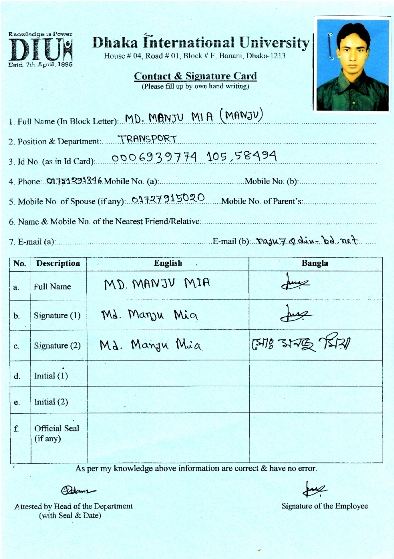 Knowledge is Power
DIU
Estd. 7th April, 1995
Dhaka International University
House # 04, Road # 01, Block # F, Banani, Dhaka-1213
Contact & Signature Card
(Please fill up by own hand writing)
1. Full Name (In Block Letter): MD. MANJU MIA (MANJU)
2. Position & Department: TRANSPORT
3. Id No. (as in Id Card): 0006939774 105,58494
4. Phone: Mobile No. (a): Mobile No. (b):
5. Mobile No. of Spouse (if any): 01727915020 Mobile No. of Parent's:
6. Name & Mobile No. of the Nearest Friend/Relative:
7. E-mail (a): E-mail (b):
No. Description English Bangla
a. Full Name MD. MANJU MIA
b. Signature (1) Md. Manju Mia
c. Signature (2) Md. Manju Mia মোঃ মানজু মিয়া
d. Initial (1)
e. Initial (2)
f. Official Seal
(if any)
As per my knowledge above information are correct & have no error.
Attested by Head of the Department Signature of the Employee
(with Seal & Date)